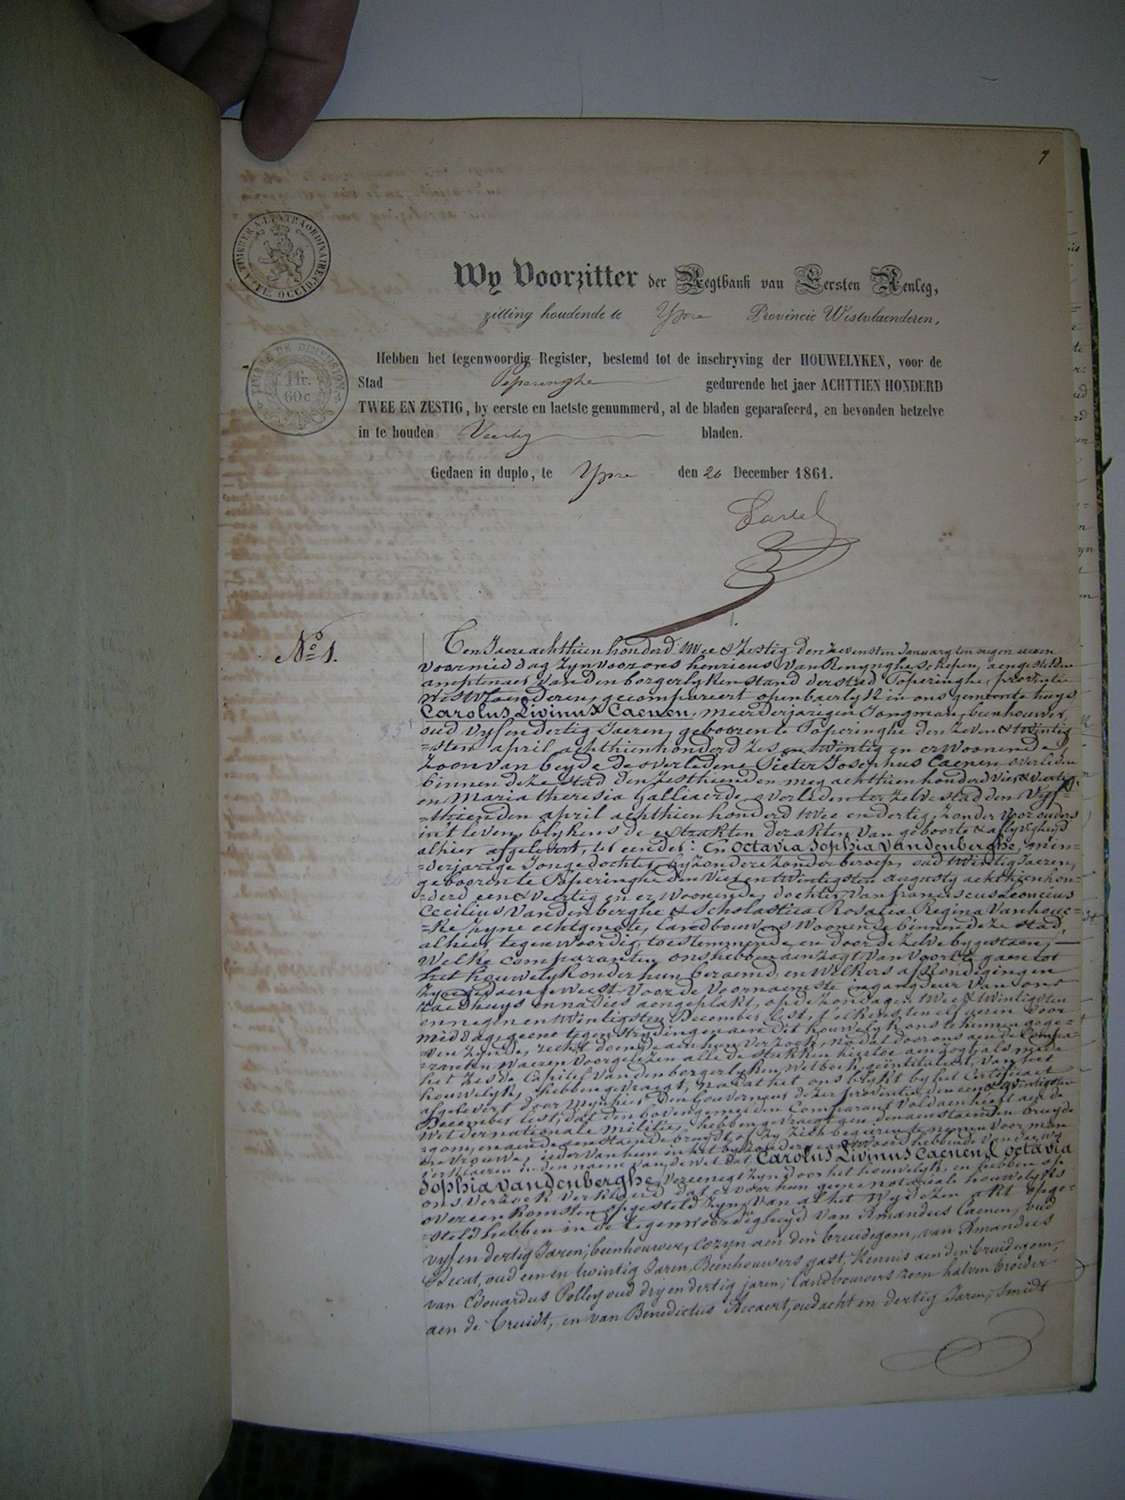 7
TIMBRE EXTRAORDINAIRE
FL. OCCID.
Wy Voorzitter der Regtbank van Eersten Aenleg,
zitting houdende te Ypre Provincie Westvlaenderen,
TIMBRE DE DIMENSION
1 fr.
60 c
Hebben het tegenwoordig Register, bestemd tot de inschryving der HOUWELYKEN, voor de
Stad Poperinghe gedurende het jaer ACHTTIEN HONDERD
TWEE EN ZESTIG, by eerste en laetste genummerd, al de bladen geparafeerd, en bevonden hetzelve
in te houden Veertig bladen.
Gedaen in duplo, te Ypre den 20 December 1861.
No 1.
Ten Jaere achthien honderd twee & Zestig den zevensten January ten negen uren
voormiddag zyn voor ons henricus Van Renynghe schepen, aengestelden
amptenaer van den borgerlyken stand der stad Poperinghe, provintie
Westvlaenderen, gecompareert openbaerlyk in ons gemeente huys
Carolus Livinus Caenen, meerderjarigen Jongman, beenhouwer,
oud Vyfendertig Jaeren, gebooren te Poperinghe den zeven & twintig
=sten april achthienhonderd zes en twintig en er Woonende,
Zoon van beyde de overledene Pieter Josephus Caenen overleden
binnen deze stad den Zesthienden mey achthien honderd vier & Veertig
en Maria theresia Galliaerde overleden ter zelve stad den Vyf=
=thienden april achthienhonderd twee en dertig, zonder voorouders
in't leven, blykens de extrakten der akten van geboorte & aflyvigheyd
alhier afgelevert, ter eender: En Octavia Sophia Vandenberghe, min=
=derjarige Jonge dochter, byzondere zonder beroep, oud twintig Jaeren,
gebooren te Poperinghe den Vier en twintigsten augusty achthienhon=
=derd een & Veertig en er Woonende, dochter van franciscus Leoncius
Cecilius Vandenberghe & Scholastica Rosalia Regina Vanhouc=
=ke zyne echtgenote, Landbouwers Woonende binnen deze stad,
alhier tegenwoordig, toestemmende en door de zelve bygestaen;
Welke comparanten ons hebben aenzogt van voorts te gaen tot
het houwelyk onder hun beraemd, en welkers afkondigingen
zyn gedaen geweest voor de voornaemste ingangdeur van ons
raedhuys en nadies aengeplakt, op de zondagen twee & twintigsten
en negen en twintigsten December lest, telkens ten elf uren voor
middag, geene tegenstrydingen aen dit houwelyk ons te kennen gege=
ven zynde, recht doende aen hun verzoek, na dat door ons aen de Compa
ranten waeren voorgelezen alle de stukken hierboven aengehaeld mede
het zesde Capitel van den borgerlyken Wetboek, geïntituleert Van het
houwelyk, hebben gevraegt, na dat het ons blykt by het Certificaet
afgelevert door Mynheer Den Gouverneur dezer provintie, den een & twintigsten
December lest, dat den bovengemelden Comparant voldaen heeft aen de
Wet der nationale militie, hebben gevraegt aen den aenstaenden bruyde
gom, en aen de aenstaende bruydt of zy zich begeeren te nemen voor man
en vrouwe, ieder van hun
verklaeren in den naem van de Wet dat Carolus Livinus Caenen & Octavia
Sophia Vandenberghe, vereenigt zyn door het houwelyk, en hebben op
ons verzoek verklaerd dat er voor hun geene notariale houwelyks
overeenkomsten opgesteld zyn, van al het Wy dezen akt opge=
=steld hebben in de tegenwoordigheyd van Amandus Caenen, oud
vyf en dertig Jaren, beenhouwer, cozyn aen den bruidegom, van Amandus
Decat, oud een en twintig Jaren, Beenhouwers gast, Kennis aen den bruidegom,
van Edouardus Polley oud dry en dertig jaren, landbouwers zoon halven broeder
aen de Bruidt, en van Benedictus Recaert, oud acht en dertig Jaren, Smidt